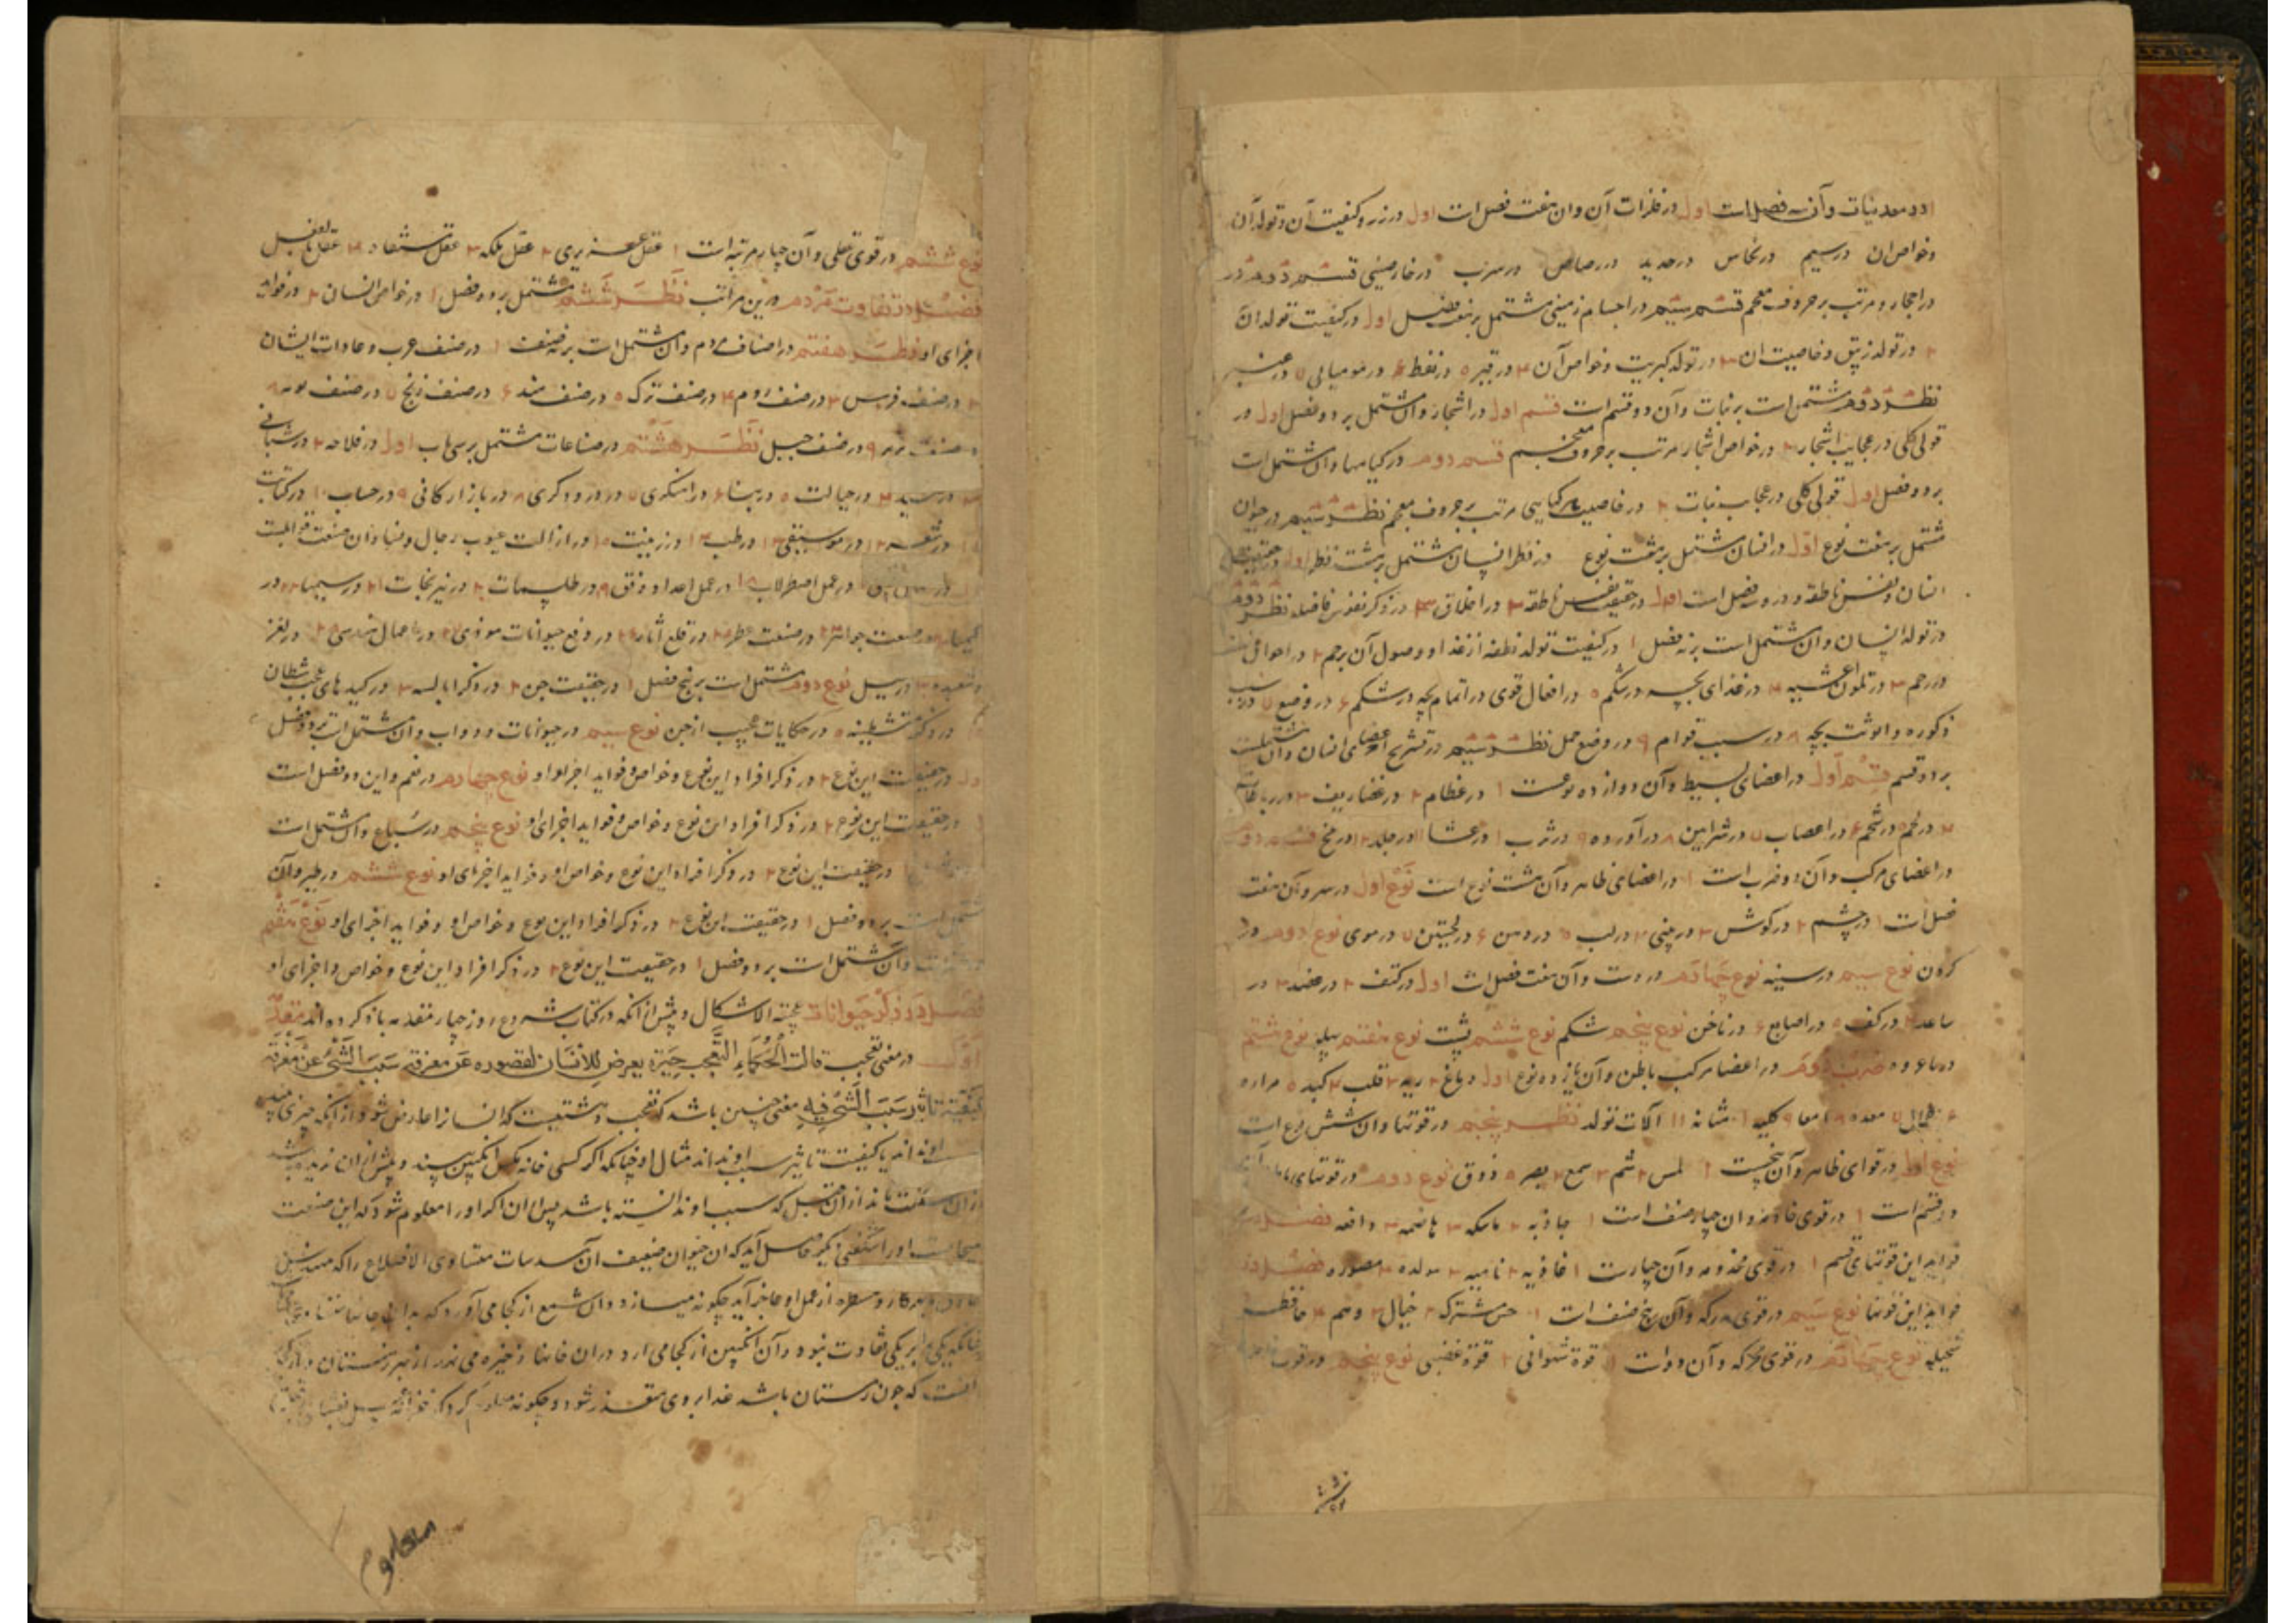 در معدنیات وآن سه فصل است اول در فلزات آن وان هفت فصل است اول در زر و کیفیت آن و تولد آن
وخواص ان در سیم در نحاس در حدید در رصاص در سرب در خارصینی قسم دوم در
در احجار و مرتب بر حروف معجم قسم سیم در اجسام زمینی مشتمل بر هفت فصل اول در کیفیت تولد ان
۲ در تولد زیبق و خاصیت ان ۳ در تولد کبریت و خواص آن ۴ در قیر ۵ در نفط ۶ در مومیایی ۷ در عنبر
نظر دوم مشتمل است بر نبات وآن دو قسم است قسم اول در اشجار وان مشتمل بر دو فصل اول در
قولی کلی در عجایب اشجار ۲ در خواص اشجار مرتب بر حروف معجم قسم دوم در کیاهها وان مشتمل است
بر دو فصل اول قولی کلی در عجایب نبات ۲ در خاصیت هر کیاهی مرتب بر حروف معجم نظر سیم در حیوان
مشتمل بر هفت نوع اول در انسان مشتمل بر هشت نوع در نظر انسان مشتمل بر هشت نظر اول در حقیقت
انسان و نفس ناطقه و درو سه فصل است اول در حقیقت نفس ناطقه ۲ در اخلاق ۳ در ذکر نفوس فاضله نظر دوم
در تولد انسان وان مشتمل است بر نه فصل ۱ در کیفیت تولد نطفه از غذا و وصول آن برحم ۲ در احوال
در رحم ۳ در تلون اغشیه ۴ در غذای بچه در شکم ۵ در افعال قوی در اتمام بچه در شکم ۶ در وضع ۷ در سبب
ذکوره و انوثت بچه ۸ در سبب توام ۹ در وضع حمل نظر سیم در تشریح اعضای انسان وآن مشتملست
بر دو قسم قسم اول در اعضای بسیط وآن دوازده نوعست ۱ در عظام ۲ در غضاریف ۳ در رباطات
۴ در لحم ۵ در شحم ۶ در اعصاب ۷ در شرایین ۸ در آورده ۹ در ثرب ۱۰ در غشا ۱۱ در جلد ۱۲ در مخ قسم دوم
در اعضای مرکب وآن دو ضرب است ۱ در اعضای ظاهر وآن هشت نوع است نوع اول در سر وآن هفت
فصل است ۱ در چشم ۲ در کوش ۳ در بینی ۴ در لب ۵ در دهن ۶ در لحیتین ۷ در موی نوع دوم در
کردن نوع سیم در سینه نوع چهارم در دست وآن هفت فصل است اول در کتف ۲ در عضد ۳ در
ساعد ۴ در کف ۵ در اصابع ۶ در ناخن نوع پنجم شکم نوع ششم پشت نوع هفتم پهلو نوع هشتم
ضرب دوم در اعضا مرکب باطن وآن یازده نوع اول دماغ ۲ ریه ۳ قلب ۴ کبد ۵ مراره
۶ طحال ۷ معده ۸ امعا ۹ کلیه ۱۰ مثانه ۱۱ آلات تولد نظر پنجم در قوتها وان شش نوع است
نوع اول در قوای ظاهر وآن پنجست ۱ لمس ۲ شم ۳ سمع ۴ بصر ۵ ذوق نوع دوم در قوتهای
دو قسم است ۱ در قوی خادمه وان چهار صنف است ۱ جاذبه ۲ ماسکه ۳ هاضمه ۴ دافعه فصل در
فواید این قوتهای قسم ۱ در قوی مخدومه وآن چهارست ۱ غاذیه ۲ نامیه ۳ مولده ۴ مصوره فصل در
فواید این قوتها نوع سیم در قوی مدرکه وآن پنج صنف است ۱ حس مشترک ۲ خیال ۳ وهم ۴ حافظه
متخیله نوع چهارم در قوی محرکه وآن دو است ۱ قوة شهوانی ۲ قوة غضبی نوع پنجم در قوت
نوع ششم در قوی عقلی وآن چهار مرتبه است ۱ عقل غریزی ۲ عقل بملکه ۳ عقل مستفاد ۴ عقل بالفعل
فصل در تفاوت مردم درین مراتب نظر ششم مشتمل بر دو فصل ۱ در خواص انسان ۲ در فواید
اجزای او نظر هفتم در اصناف مردم وآن مشتمل است بر نه صنف ۱ در صنف عرب و عادات ایشان
۲ در صنف فرس ۳ در صنف روم ۴ در صنف ترک ۵ در صنف هند ۶ در صنف زنج ۷ در صنف نوبه ۸
در صنف بربر ۹ در صنف جبل نظر هشتم در صناعات مشتمل بر سی باب اول در فلاحه ۲ در شبانی
۳ در صید ۴ در حیاکت ۵ در بنا ۶ در آهنکری ۷ در درودکری ۸ در بازارکانی ۹ در حساب ۱۰ در کتابت
۱۱ در شعر ۱۲ در موسیقی ۱۳ در طب ۱۴ در زینت ۱۵ در ازالت عیوب رجال و نساء وان صنعت
در عمل اصطرلاب ۱۸ در عمل اعداد وفق ۱۹ در طلسمات ۲۰ در نیرنجات ۲۱ در سیمیا ۲۲ در
کیمیا در صنعت جواهر ۲۴ در صنعت عطر ۲۵ در قلع آثار ۲۶ در دفع حیوانات موذی ۲۷ در اعمال هندسی ۲۸ در لغز
و شعبده ۳۰ در سیل نوع دوم مشتمل است بر پنج فصل ۱ در حقیقت جن ۲ در ذکر ابالسه ۳ در کیدهای عجب شیطان
۴ در ذکر متشیطنه ۵ در حکایات عجیب از جن نوع سیم در حیوانات و دواب وان مشتمل است بر دو فصل
اول در حقیقت این نوع ۲ در ذکر افراد این نوع و خواص و فواید اجزاء او نوع چهارم در نعم واین دو فصل است
۱ در حقیقت این نوع ۲ در ذکر افراد این نوع و خواص و فواید اجزای او نوع پنجم در سباع وان مشتمل است
۱ در حقیقت این نوع ۲ در ذکر افراد این نوع و خواص او و فواید اجزای او نوع ششم در طیر وآن
مشتمل است بر دو فصل ۱ در حقیقت این نوع ۲ در ذکر افراد این نوع و خواص او و فواید اجزای او نوع هفتم
وآن مشتمل است بر دو فصل ۱ در حقیقت این نوع ۲ در ذکر افراد این نوع و خواص و اجزای او
فصل در ذکر حیوانات عجیبة الاشکال و پیش از انکه در کتاب شروع رود چهار مقدمه یاد کرده آید مقدمه
اول در معنی تعجب قالت الحکماء التعجب حیرة یعرض للانسان لقصوره عن معرفة سبب الشئ او عن معرفة
کیفیة تاثیر سبب الشئ فیه معنی چنین باشد که تعجب دهشتیست که انسان را عارض شود از انکه چیزی بیند
او نداند یا کیفیت تاثیر سبب او نداند مثال او چنانکه اکر کسی خانه مکس انکبین بیند و پیش از ان ندیده باشد
از ان شکفت ماند از ان قبل که سبب او ندانسته باشد پس از ان اکر او را معلوم شود که این صنعت
او را شکفتی دیکر حاصل آید که ان حیوان ضعیف آن مسدسات متساوی الاضلاع را که مهندسین
و مسطره از عمل او عاجز آید چکونه میسازد وان شمع از کجا می آورد که بدان خانها
چنانکه یکی را بر یکی تفاوت نبود وآن انکبین از کجا می ارد در ان خانها ذخیره می نهد از بهر زمستان
که چون زمستان باشد غذا بر وی متعذر شود و چکونه معلوم کرد که